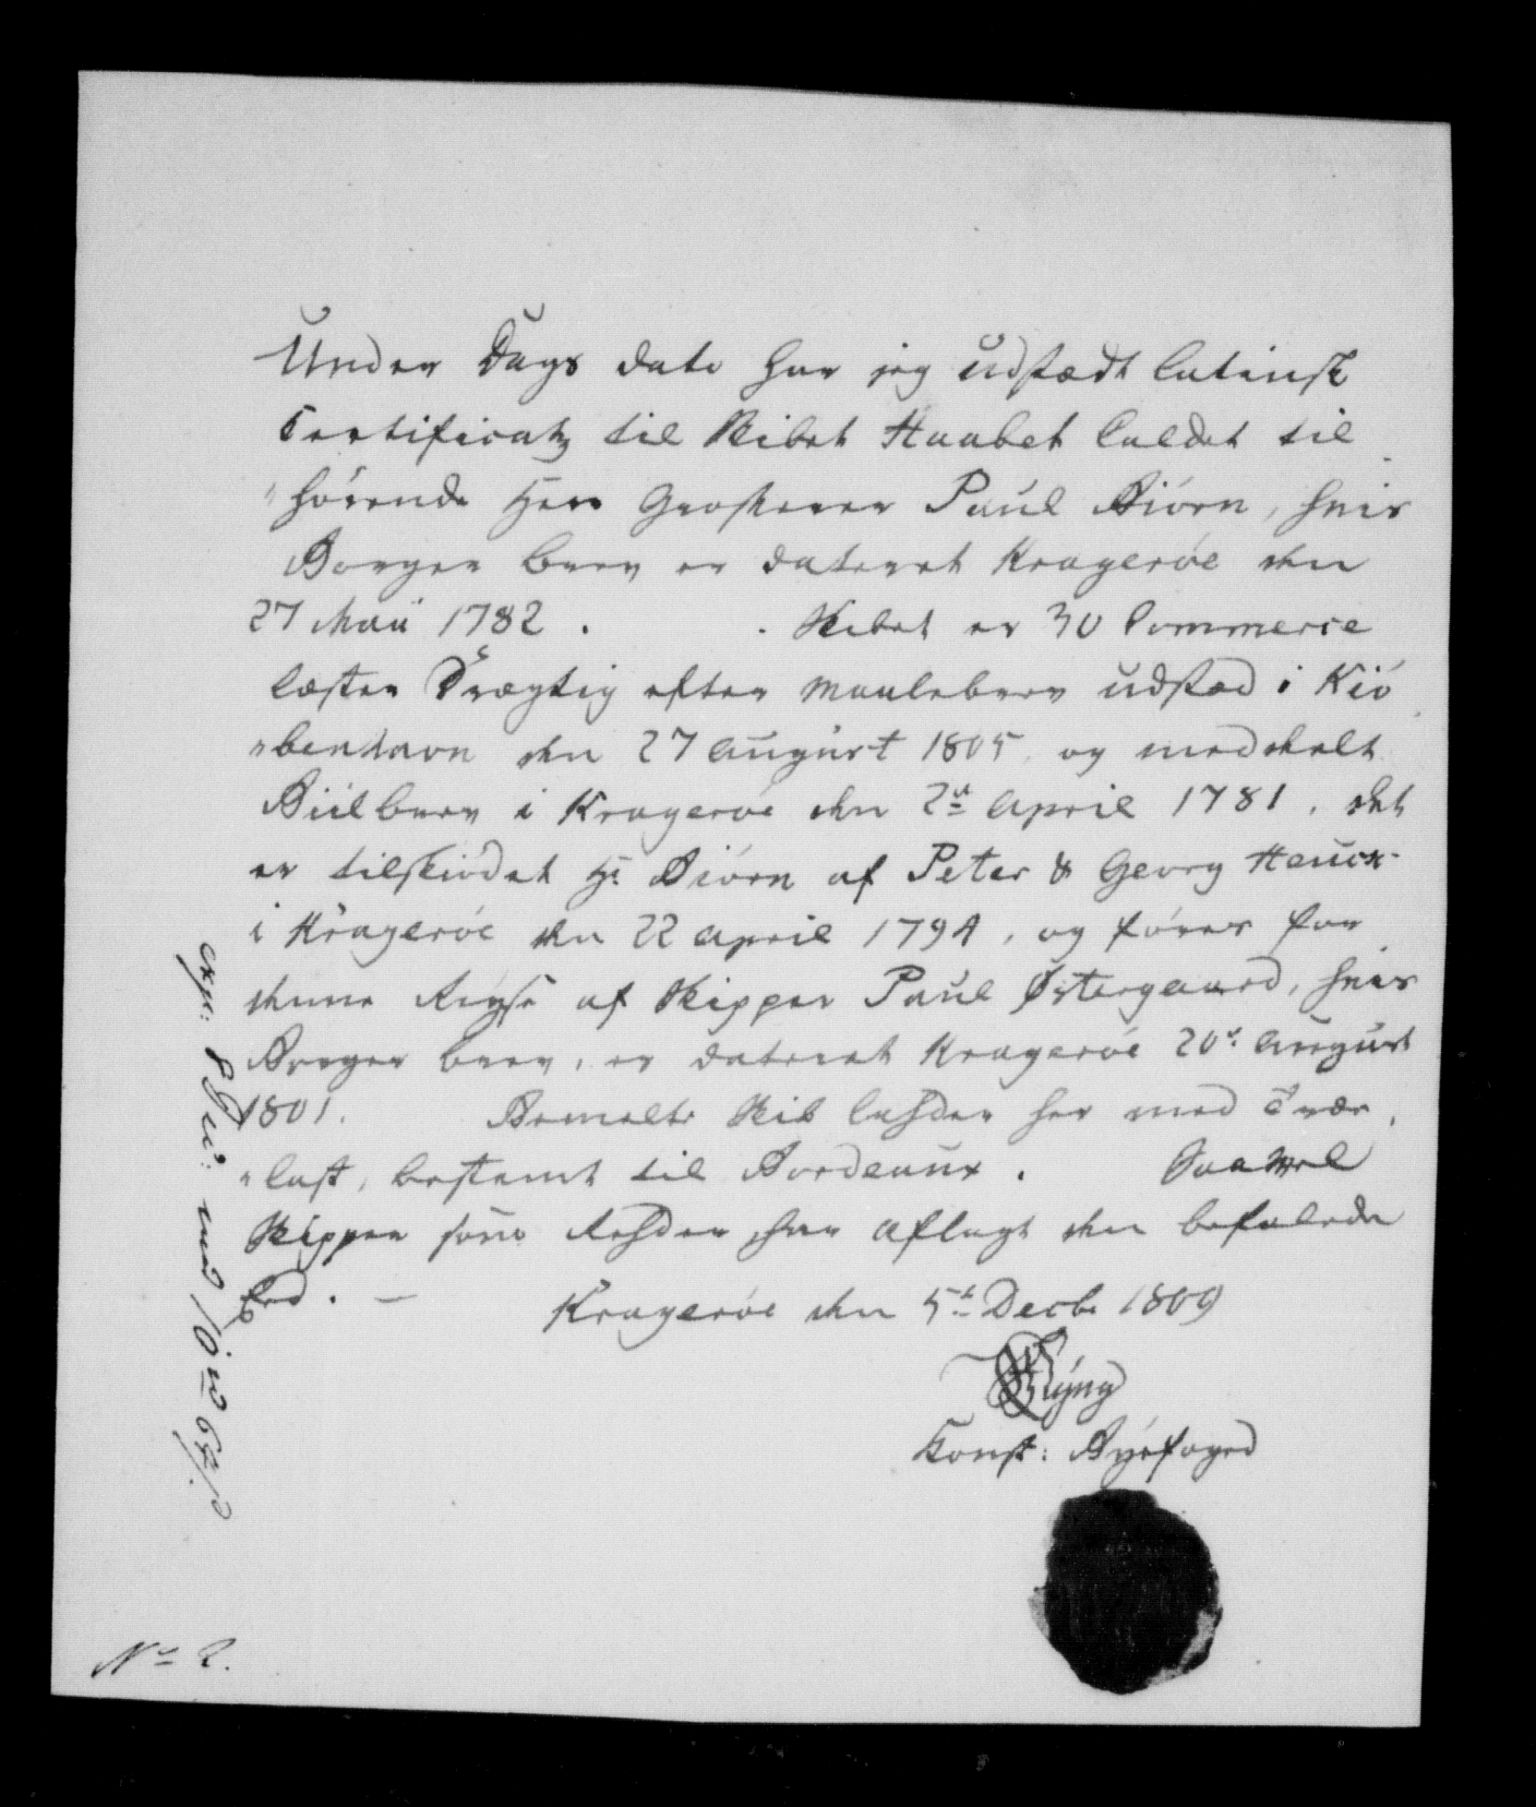 Under Dags dato har jeg udstædt latinsk
Certificatz til Skibet Haabet kaldet til
"hørende Herr Grosserer Paul Biørn, hvis
Borger brev er dateret Kragerøe den
27 Maii 1782. Skibet er 30 Commerce
læster Drægtig efter Maalebrev udstæd i Kiø
"benhavn den 27 August 1805 og meddeelt
Biilbrev i Kragerøe den 2d April 1781. det
er tilskiødet Hr Biørn af Peter & Georg Heuch
i Kragerøe den 22 April 1794, og føres for
denne Reyse af Skipper Paul Østergaard, hvis
Borger brev, er dateret Kragerøe 20d August
1801. Bemelte Skib ladder her med Træe
"last, bestemt til Bordeaux. Saavel
Skipper som Redder har aflagt den befalede
Eed. —
Kragerøe den 5t Decbr 1809
Konst: Byefoged
No 2.